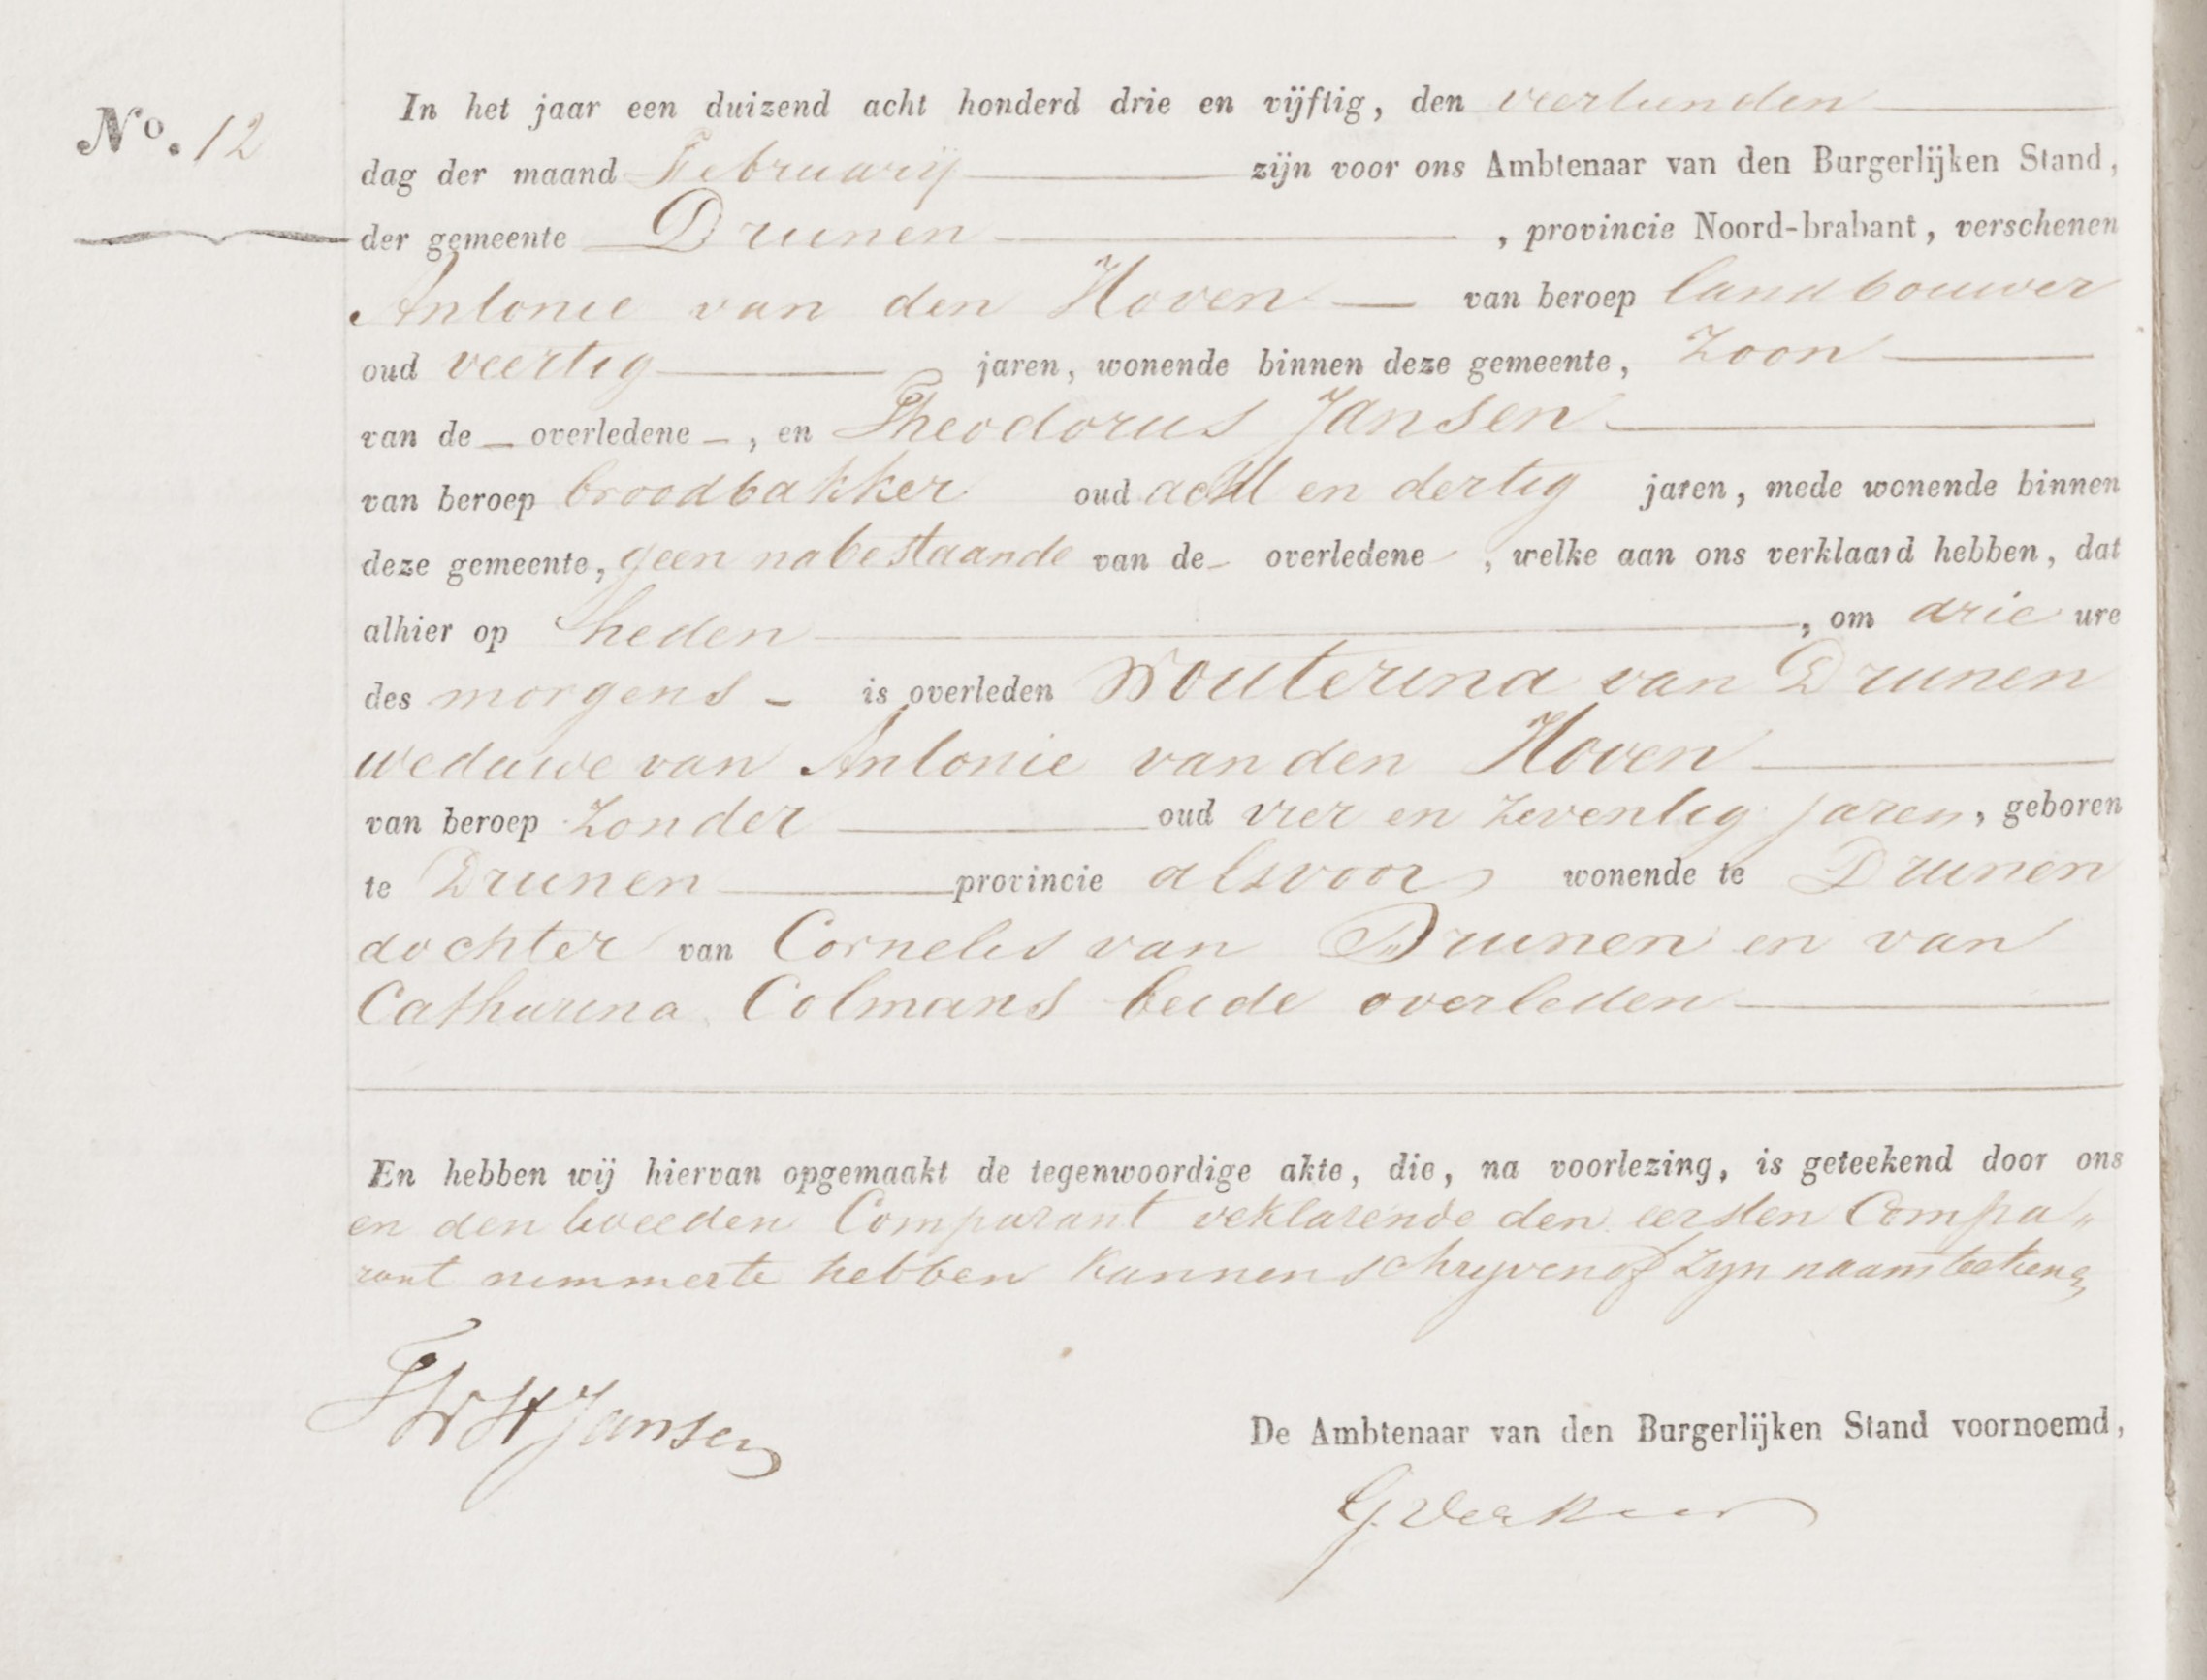 No. 12
In het jaar een duizend acht honderd drie en vijftig, den veertienden
dag der maand Februarij zijn voor ons Ambtenaar van den Burgerlijken Stand,
der gemeente Drunen, provincie Noord-brabant, verschenen
Antonie van den Hoven van beroep landbouwer
oud veertig jaren, wonende binnen deze gemeente, Zoon
van de overledene, en Theodorus Jansen
van beroep broodbakker oud acht en dertig jaren, mede wonende binnen
deze gemeente, geen nabestaande van de overledene, welke aan ons verklaard hebben, dat
alhier op heden, om drie ure
des morgens is overleden Wouterina van Drunen
weduwe van Antonie van den Hoven
van beroep Zonder oud vier en zeventig jaren, geboren
te Drunen provincie alsvoor wonende te Drunen
dochter van Cornelis van Drunen en van
Catharina Colmans beide overleden
En hebben wij hiervan opgemaakt de tegenwoordige akte, die, na voorlezing, is geteekend door ons
en den tweeden Comparant veklarende den eersten Compa„
rant nimmer te hebben kunnen schryven of zyn naam teekenen
ThWH Jansen
De Ambtenaar van den Burgerlijken Stand voornoemd,